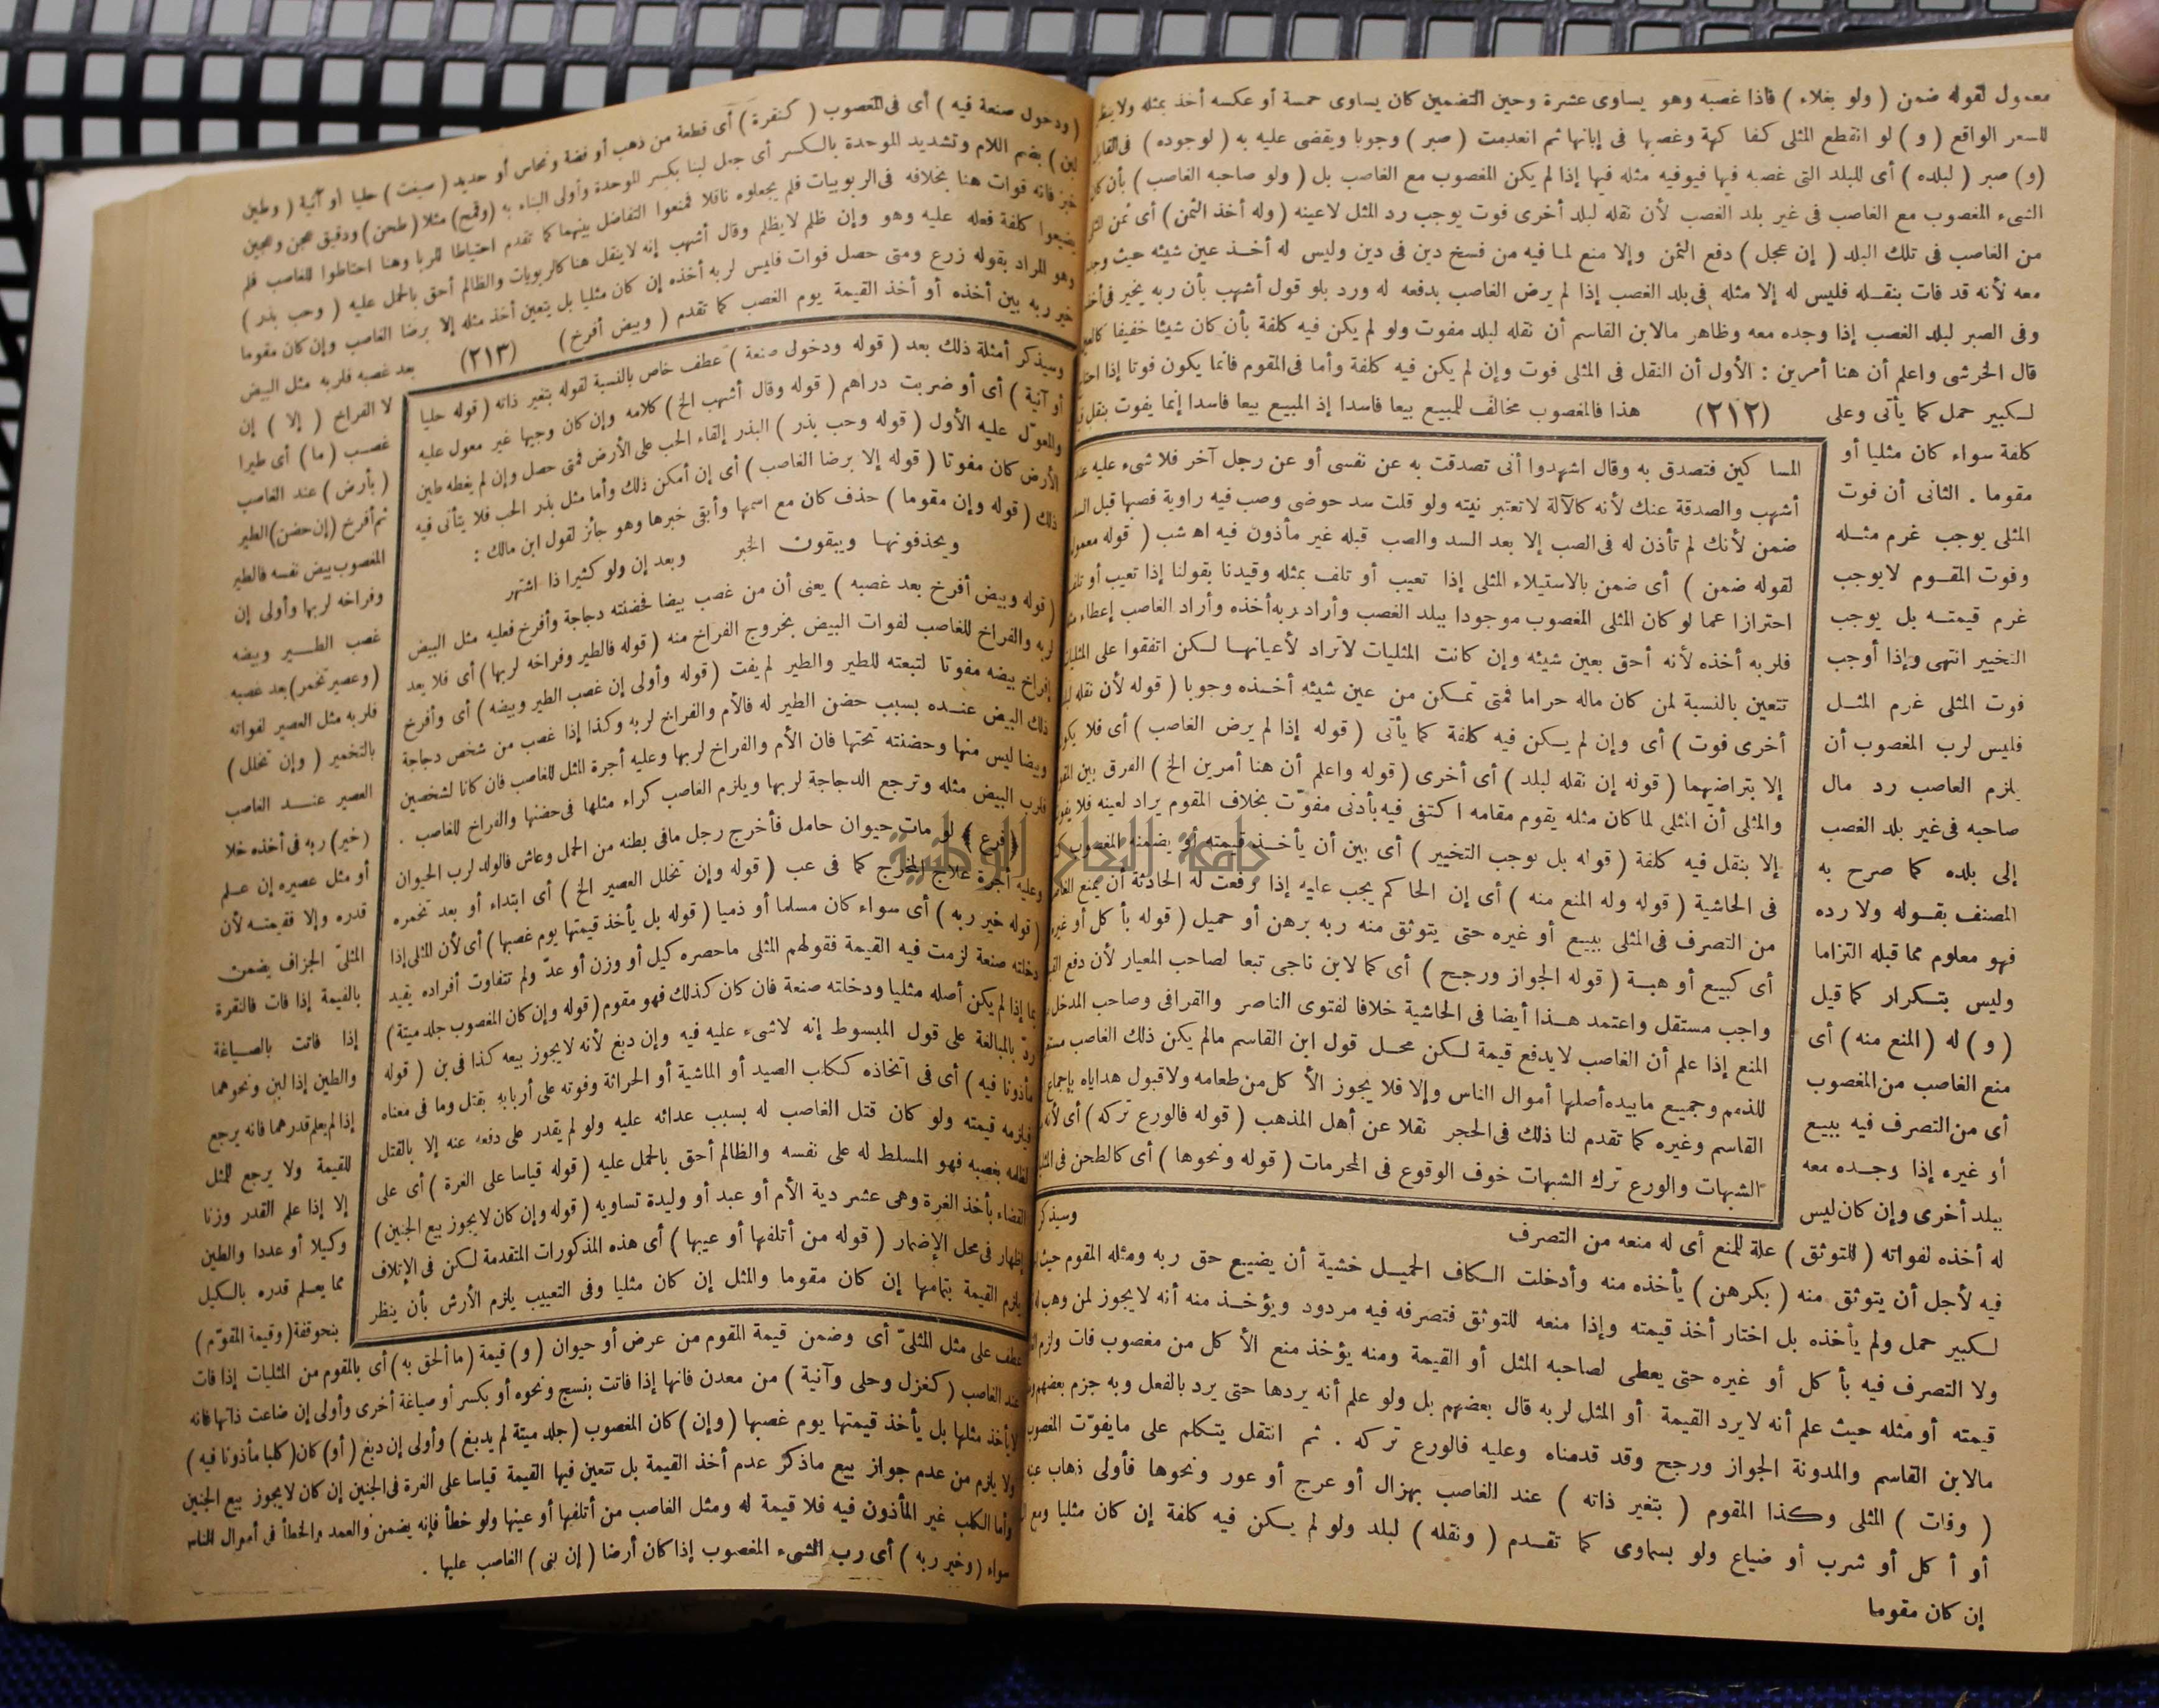 معمول لقوله ضمن ( ولو بغلاء ) فاذا غصبه وهو يساوى عشرة وحين التضمين كان يساوى خمسة أو عكسه أخذ بمثله ولا ينظر
للسعر الواقع ( و ) لو انقطع المثلى كفا كهة وغصبها فى إبانها ثم انعدمت ( صبر ) وجوبا ويقضى عليه به ( لوجوده ) فى القابل
(و) صبر ( لبلده ) أى للبلد التى غصبه فيها فيوفيه مثله فيها إذا لم يكن المغصوب مع الغاصب بل ( ولو صاحبه الغاصب ) بأن كان
الشىء المغصوب مع الغاصب فى غير بلد الغصب لأن نقله لبلد أخرى فوت يوجب رد المثل لاعينه ( وله أخذ الثمن ) أى ثمن المثلى
من الغاصب فى تلك البلد ( إن عجل ) دفع الثمن وإلا منع لما فيه من فسخ دين فى دين وليس له أخذ عين شيئه حيث وجده
معه لأنه قد فات بنقله فليس له إلا مثله فى بلد الغصب إذا لم يرض الغاصب بدفعه له ورد بلو قول أشهب بأن ربه يخير فى أخذه
وفى الصبر لبلد الغصب إذا وجده معه وظاهر مالابن القاسم أن نقله لبلد مفوت ولو لم يكن فيه كلفة بأن كان شيئا خفيفا
قال الخرشى واعلم أن هنا أمرين : الأول أن النقل فى المثلى فوت وإن لم يكن فيه كلفة وأما فى المقوم فانما يكون فوتا إذا احتاج
لكبير حمل كما يأتى وعلى (٢١٢) هذا فالمغصوب مخالف للمبيع بيعا فاسدا إذ المبيع بيعا فاسدا إنما يفوت بنقل فيه
كلفة سواء كان مثليا أو
مقوما . الثانى أن فوت
المثلى يوجب غرم مثله
وفوت المقوم لايوجب
غرم قيمته بل يوجب
التخيير انتهى وإذا أوجب
فوت المثلى غرم المثل
فليس لرب المغصوب أن
يلزم الغاصب رد مال
صاحبه فى غير بلد الغصب
إلى بلده كما صرح به
المصنف بقوله ولا رده
فهو معلوم مما قبله التزاما
وليس بتكرار كما قيل
( و ) له ( المنع منه ) أى
منع الغاصب من المغصوب
أى من التصرف فيه ببيع
أو غيره إذا وجده معه
ببلد أخرى وإن كان ليس
له أخذه لفواته ( للتوثق ) علة للمنع أى له منعه من التصرف
فيه لأجل أن يتوثق منه ( بكرهن ) يأخذه منه وأدخلت الكاف الحميل خشية أن يضيع حق ربه ومثله المقوم حيث
لكبير حمل ولم يأخذه بل اختار أخذ قيمته وإذا منعه للتوثق فتصرفه فيه مردود ويؤخذ منه أنه لايجوز لمن وهب له
ولا التصرف فيه بأ كل أو غيره حتى يعطى لصاحبه المثل أو القيمة ومنه يؤخذ منع الأ كل من مغصوب فات ولزم
قيمته أو مثله حيث علم أنه لايرد القيمة أو المثل لربه قال بعضهم بل ولو علم أنه يردها حتى يرد بالفعل وبه جزم بعضهم
مالابن القاسم والمدونة الجواز ورجح وقد قدمناه وعليه فالورع تركه . ثم انتقل يتكلم على مايفوّت المغصوب
( وفات ) المثلى وكذا المقوم ( بتغير ذاته ) عند الغاصب بهزال أو عرج أو عور ونحوها فأولى ذهاب عينه
أو أ كل أو شرب أو ضياع ولو بسماوى كما تقدم ( ونقله ) لبلد ولو لم يكن فيه كلفة إن كان مثليا ومع
إن كان مقوما
المسا كين فتصدق به وقال اشهدوا أنى تصدقت به عن نفسى أو عن رجل آخر فلا شىء عليه عند
أشهب والصدقة عنك لأنه كالآلة لاتعتبر نيته ولو قلت سد حوضى وصب فيه راوية فصبها قبل السد
ضمن لأنك لم تأذن له فى الصب إلا بعد السد والصب قبله غير مأذون فيه اه شب ( قوله معمول
لقوله ضمن ) أى ضمن بالاستيلاء المثلى إذا تعيب أو تلف بمثله وقيدنا بقولنا إذا تعيب أو تلف
احترازا عما لو كان المثلى المغصوب موجودا ببلد الغصب وأراد ربه أخذه وأراد الغاصب إعطاء مثله
فلربه أخذه لأنه أحق بعين شيئه وإن كانت المثليات لاتراد لأعيانها لكن اتفقوا على المثليات
تتعين بالنسبة لمن كان ماله حراما فمتى تمكن من عين شيئه أخذه وجوبا ( قوله لأن نقله لبلد
أخرى فوت ) أى وإن لم يكن فيه كلفة كما يأتى ( قوله إذا لم يرض الغاصب ) أى فلا يكون
إلا بتراضيهما ( قوله إن نقله لبلد ) أى أخرى ( قوله واعلم أن هنا أمرين الخ ) الفرق بين المقوم
والمثلى أن المثلى لما كان مثله يقوم مقامه ا كتفى فيه بأدنى مفوّت بخلاف المقوم يراد لعينه فلا يفوت
إلا بنقل فيه كلفة ( قوله بل يوجب التخيير ) أى بين أن يأخذ قيمته أو يضمنه المغصوب كما
فى الحاشية ( قوله وله المنع منه ) أى إن الحا كم يجب عليه إذا رفعت له الحادثة أن يمنع الغاصب
من التصرف فى المثلى ببيع أو غيره حتى يتوثق منه ربه برهن أو حميل ( قوله بأ كل أو غيره )
أى كبيع أو هبة ( قوله الجواز ورجح ) أى كما لابن ناجى تبعا لصاحب المعيار لأن دفع القيمة
واجب مستقل واعتمد هذا أيضا فى الحاشية خلافا لفتوى الناصر والقرافى وصاحب المدخل
المنع إذا علم أن الغاصب لايدفع قيمة لكن محل قول ابن القاسم مالم يكن ذلك الغاصب مستغرق
للذمم وجميع مابيده أصلها أموال الناس وإلا فلا يجوز الأ كل من طعامه ولا قبول هداياه بإجماع
القاسم وغيره كما تقدم لنا ذلك فى الحجر نقلا عن أهل المذهب ( قوله فالورع تركه ) أى لأنه
الشبهات والورع ترك الشبهات خوف الوقوع فى المحرمات ( قوله ونحوها ) أى كالطحن فى
وسيذكر
( ودخول صنعة فيه ) أى فى المغصوب ( كنقرة ) أى قطعة من ذهب أو فضة ونحاس أو حديد ( صيغت ) حليا أو آنية ( وطين
لبن ) بضم اللام وتشديد الموحدة بالكسر أى جعل لبنا بكسر الموحدة وأولى البناء به ( وقمح ) مثلا ( طحن ) ودقيق عجن وعجين
خبز فانه فوات هنا بخلافه فى الربويات فلم يجعلوه ناقلا فمنعوا التفاضل بينهما كما تقدم احتياطا للربا وهنا احتاطوا للغاصب فلم
يضيعوا كلفة فعله عليه وهو وإن ظلم لايظلم وقال أشهب إنه لاينقل هنا كالربويات والظالم أحق بالحمل عليه ( وحب بذر )
وهو المراد بقوله زرع ومتى حصل فوات فليس لربه أخذه إن كان مثليا بل يتعين أخذ مثله إلا برضا الغاصب وإن كان مقوما
خير ربه بين أخذه أو أخذ القيمة يوم الغصب كما تقدم ( وبيض أفرخ ) (٢١٣) بعد غصبه فلربه مثل البيض
لا الفراخ ( إلا ) إن
غصب ( ما ) أى طيرا
( بأرض ) عند الغاصب
ثم أفرخ ( إن حضن ) الطير
المغصوب بيض نفسه فالطير
وفراخه لربها وأولى إن
غصب الطير وبيضه
( وعصير تخمر ) بعد غصبه
فلربه مثل العصير لفواته
بالتخمير ( وإن تخلل )
العصير عند الغاصب
( خير ) ربه فى أخذه خلا
أو مثل عصيره إن علم
قدره وإلا فقيمته لأن
المثلىّ الجزاف يضمن
بالقيمة إذا فات فالنقرة
إذا فاتت بالصياغة
والطين إذا لبن ونحوهما
إذا لم يعلم قدرهما فانه يرجع
للقيمة ولا يرجع للمثل
إلا إذا علم القدر وزنا
وكيلا أو عددا والطين
مما يعلم قدره بالكيل
بنحو قفة ( وقيمة المقوّم )
عطف على مثل المثلىّ أى وضمن قيمة المقوم من عرض أو حيوان ( و ) قيمة ( ما ألحق به ) أى بالمقوم من المثليات إذا فات
عند الغاصب ( كغزل وحلى وآنية ) من معدن فانها إذا فاتت بنسج ونحوه أو بكسر أو صياغة أخرى وأولى إن ضاعت ذاتها فانه
لايأخذ مثلها بل يأخذ قيمتها يوم غصبها ( وإن ) كان المغصوب ( جلد ميتة لم يدبغ ) وأولى إن دبغ ( أو ) كان ( كلبا مأذونا فيه )
ولا يلزم من عدم جواز بيع ماذكر عدم أخذ القيمة بل تتعين فيها القيمة قياسا على الغرة فى الجنين إن كان لايجوز بيع الجنين
وأما الكلب غير المأذون فيه فلا قيمة له ومثل الغاصب من أتلفها أو عيبها ولو خطأ فإنه يضمن والعمد والخطأ فى أموال الناس
سواء ( وخير ربه ) أى رب الشىء المغصوب إذا كان أرضا ( إن بنى ) الغاصب عليها .
وسيذكر أمثلة ذلك بعد ( قوله ودخول صنعة ) عطف خاص بالنسبة لقوله بتغير ذاته ( قوله حليا
أو آنية ) أى أو ضربت دراهم ( قوله وقال أشهب الخ ) كلامه وإن كان وجيها غير معول عليه
والمعوّل عليه الأول ( قوله وحب بذر ) البذر إلقاء الحب على الأرض فمتى حصل وإن لم يغطه طين
الأرض كان مفوتا ( قوله إلا برضا الغاصب ) أى إن أمكن ذلك وأما مثل بذر الحب فلا يتأتى فيه
ذلك ( قوله وإن مقوما ) حذف كان مع اسمها وأبقى خبرها وهو جائز لقول ابن مالك :
ويحذفونها ويبقون الخبر وبعد إن ولو كثيرا ذا اشتهر
( قوله وبيض أفرخ بعد غصبه ) يعنى أن من غصب بيضا فحضنته دجاجة وأفرخ فعليه مثل البيض
لربه والفراخ للغاصب لفوات البيض بخروج الفراخ منه ( قوله فالطير وفراخه لربها ) أى فلا يعد
إفراخ بيضه مفوتا لتبعته للطير والطير لم يفت ( قوله وأولى إن غصب الطير وبيضه ) أى وأفرخ
ذلك البيض عنده بسبب حضن الطير له فالأم والفراخ لربه وكذا إذا غصب من شخص دجاجة
وبيضا ليس منها وحضنته تحتها فان الأم والفراخ لربها وعليه أجرة المثل للغاصب فان كانا لشخصين
فلرب البيض مثله وترجع الدجاجة لربها ويلزم الغاصب كراء مثلها فى حضنها والفراخ للغاصب .
﴿ فرع ﴾ لو مات حيوان حامل فأخرج رجل مافى بطنه من الحمل وعاش فالولد لرب الحيوان
وعليه أجرة علاج المخرج كما فى عب ( قوله وإن تخلل العصير الخ ) أى ابتداء أو بعد تخمره
( قوله خير ربه ) أى سواء كان مسلما أو ذميا ( قوله بل يأخذ قيمتها يوم غصبها ) أى لأن المثلى إذا
دخلته صنعة لزمت فيه القيمة فقولهم المثلى ماحصره كيل أو وزن أو عدّ ولم تتفاوت أفراده يقيد
بما إذا لم يكن أصله مثليا ودخلته صنعة فان كان كذلك فهو مقوم ( قوله وإن كان المغصوب جلد ميتة )
ردّ بالمبالغة على قول المبسوط إنه لاشىء عليه فيه وإن دبغ لأنه لايجوز بيعه كذا فى بن ( قوله
مأذونا فيه ) أى فى اتخاذه ككلب الصيد أو الماشية أو الحراثة وفوته على أربابه بقتل وما فى معناه
فيلزمه قيمته ولو كان قتل الغاصب له بسبب عدائه عليه ولو لم يقدر على دفعه عنه إلا بالقتل
لظلمه بغصبه فهو المسلط له على نفسه والظالم أحق بالحمل عليه ( قوله قياسا على الغرة ) أى على
القضاء بأخذ الغرة وهى عشر دية الأم أو عبد أو وليدة تساويه ( قوله وإن كان لايجوز بيع الجنين )
إظهار فى محل الإضمار ( قوله من أتلفها أو عيبها ) أى هذه المذكورات المتقدمة لكن فى الإتلاف
يلزم القيمة بتمامها إن كان مقوما والمثل إن كان مثليا وفى التعييب يلزم الأرش بأن ينظر
جامعة النجاح الوطنية